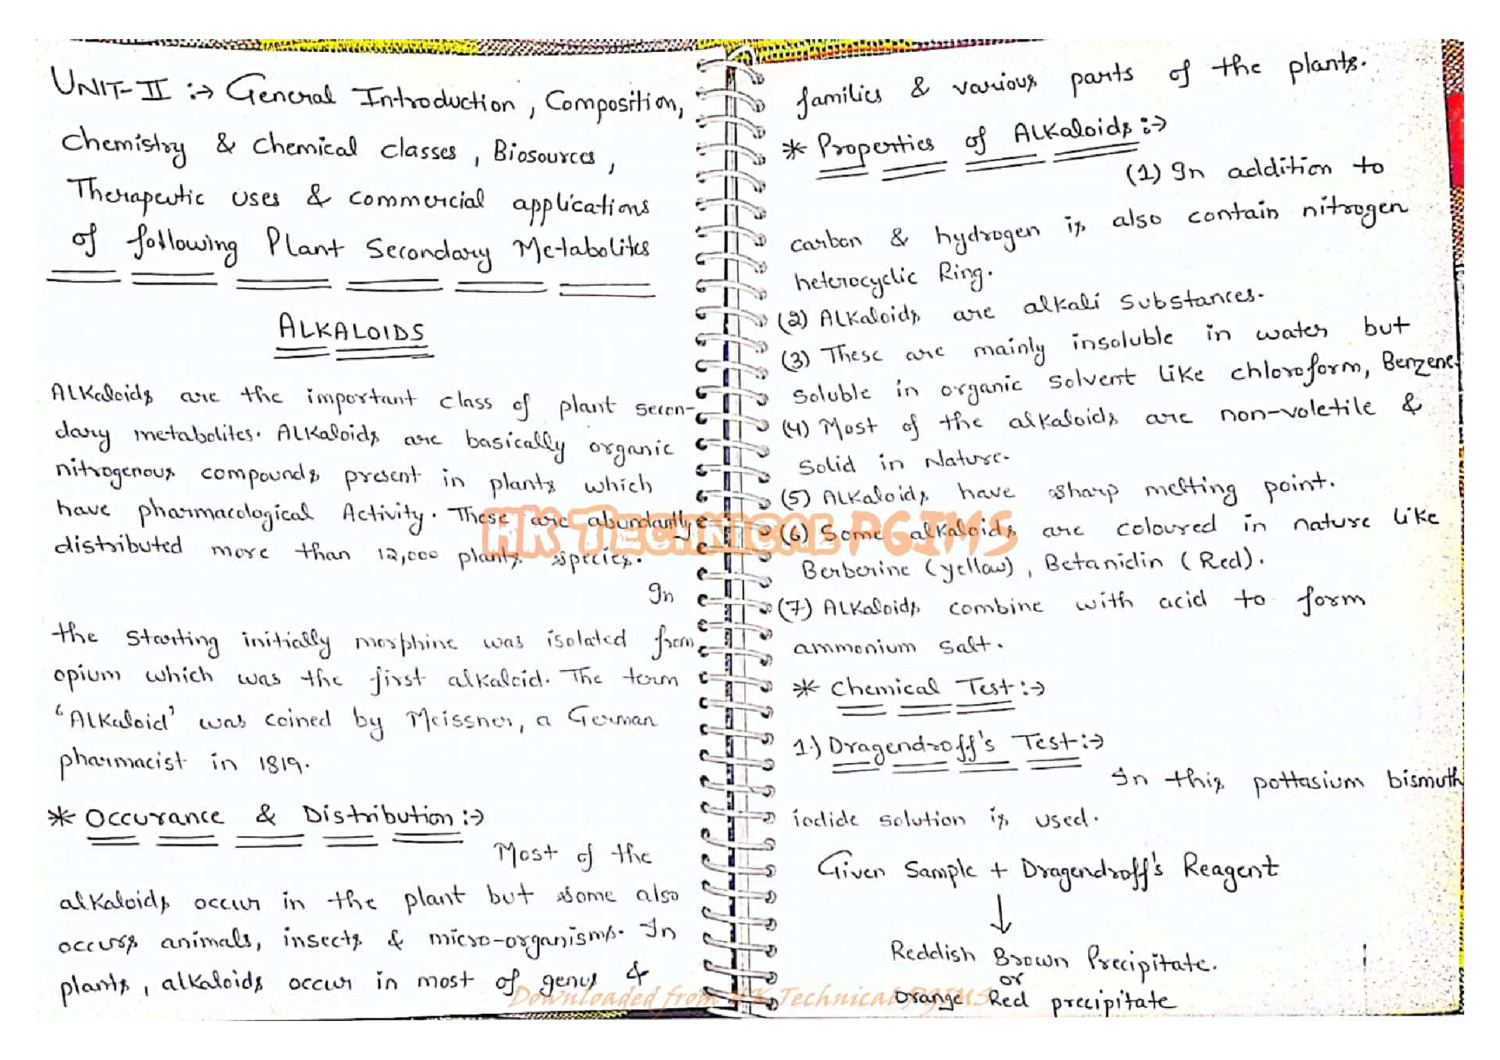 UNIT-II :→ General Introduction, Composition,
Chemistry & chemical classes, Biosources,
Therapeutic uses & commercial applications
of following Plant Secondary Metabolites
ALKALOIDS
Alkaloids are the important class of plant secon-
dary metabolites. Alkaloids are basically organic
nitrogenous compounds present in plants which
have pharmacological Activity. These are abundantly
distributed more than 12,000 plants species.
In
the starting initially morphine was isolated from
opium which was the first alkaloid. The term
'Alkaloid' was coined by Meissner, a German
pharmacist in 1819.
* Occurance & Distribution :→
Most of the
alkaloids occur in the plant but some also
occurs animals, insects & micro-organisms. In
plants, alkaloids occur in most of genus &
families & various parts of the plants.
* Properties of Alkaloids :→
(1) In addition to
carbon & hydrogen is also contain nitrogen
heterocyclic Ring.
(2) Alkaloids are alkali substances.
(3) These are mainly insoluble in water but
soluble in organic solvent like chloroform, Benzene.
(4) Most of the alkaloids are non-voletile &
solid in Nature.
(5) Alkaloids have sharp melting point.
(6) Some alkaloids are coloured in nature like
Berberine (yellow), Betanidin (Red).
(7) Alkaloids combine with acid to form
ammonium salt.
* Chemical Test :→
1.) Dragendroff's Test :→
In this pottasium bismuth
iodide solution is used.
Given Sample + Dragendroff's Reagent
↓
Reddish Brown Precipitate.
or
Orange Red precipitate
HK TECHNICAL PGIMS
Downloaded from HK Technical PGIMS